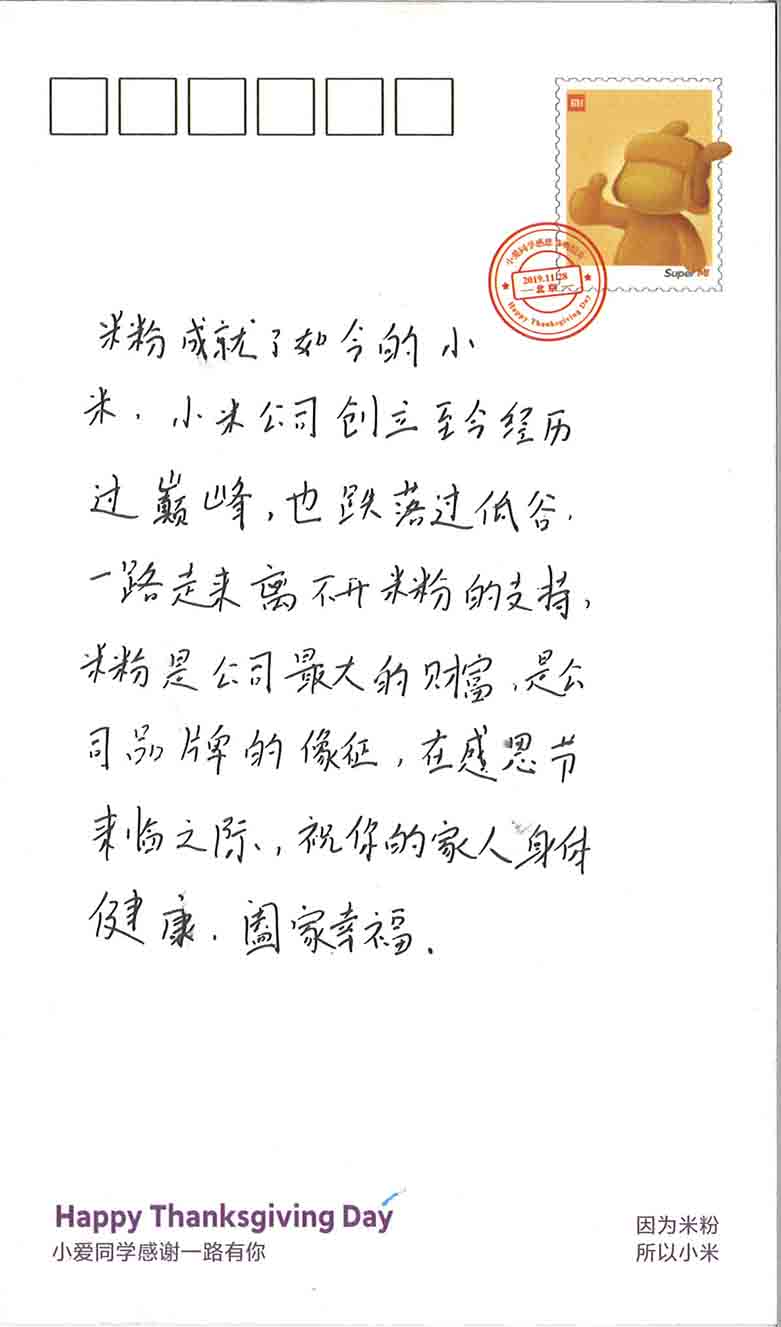 MI
Super MI
小爱同学感恩
2019.11.28
北京
Happy Thanksgiving Day
米粉成就了如今的小
米，小米公司创立至今经历
过巅峰，也跌落过低谷．
一路走来离不开米粉的支持，
米粉是公司最大的财富，是公
司品牌的像征，在感恩节
来临之际，祝你的家人身体
健康．阖家幸福．
Happy Thanksgiving Day
小爱同学感谢一路有你
因为米粉
所以小米